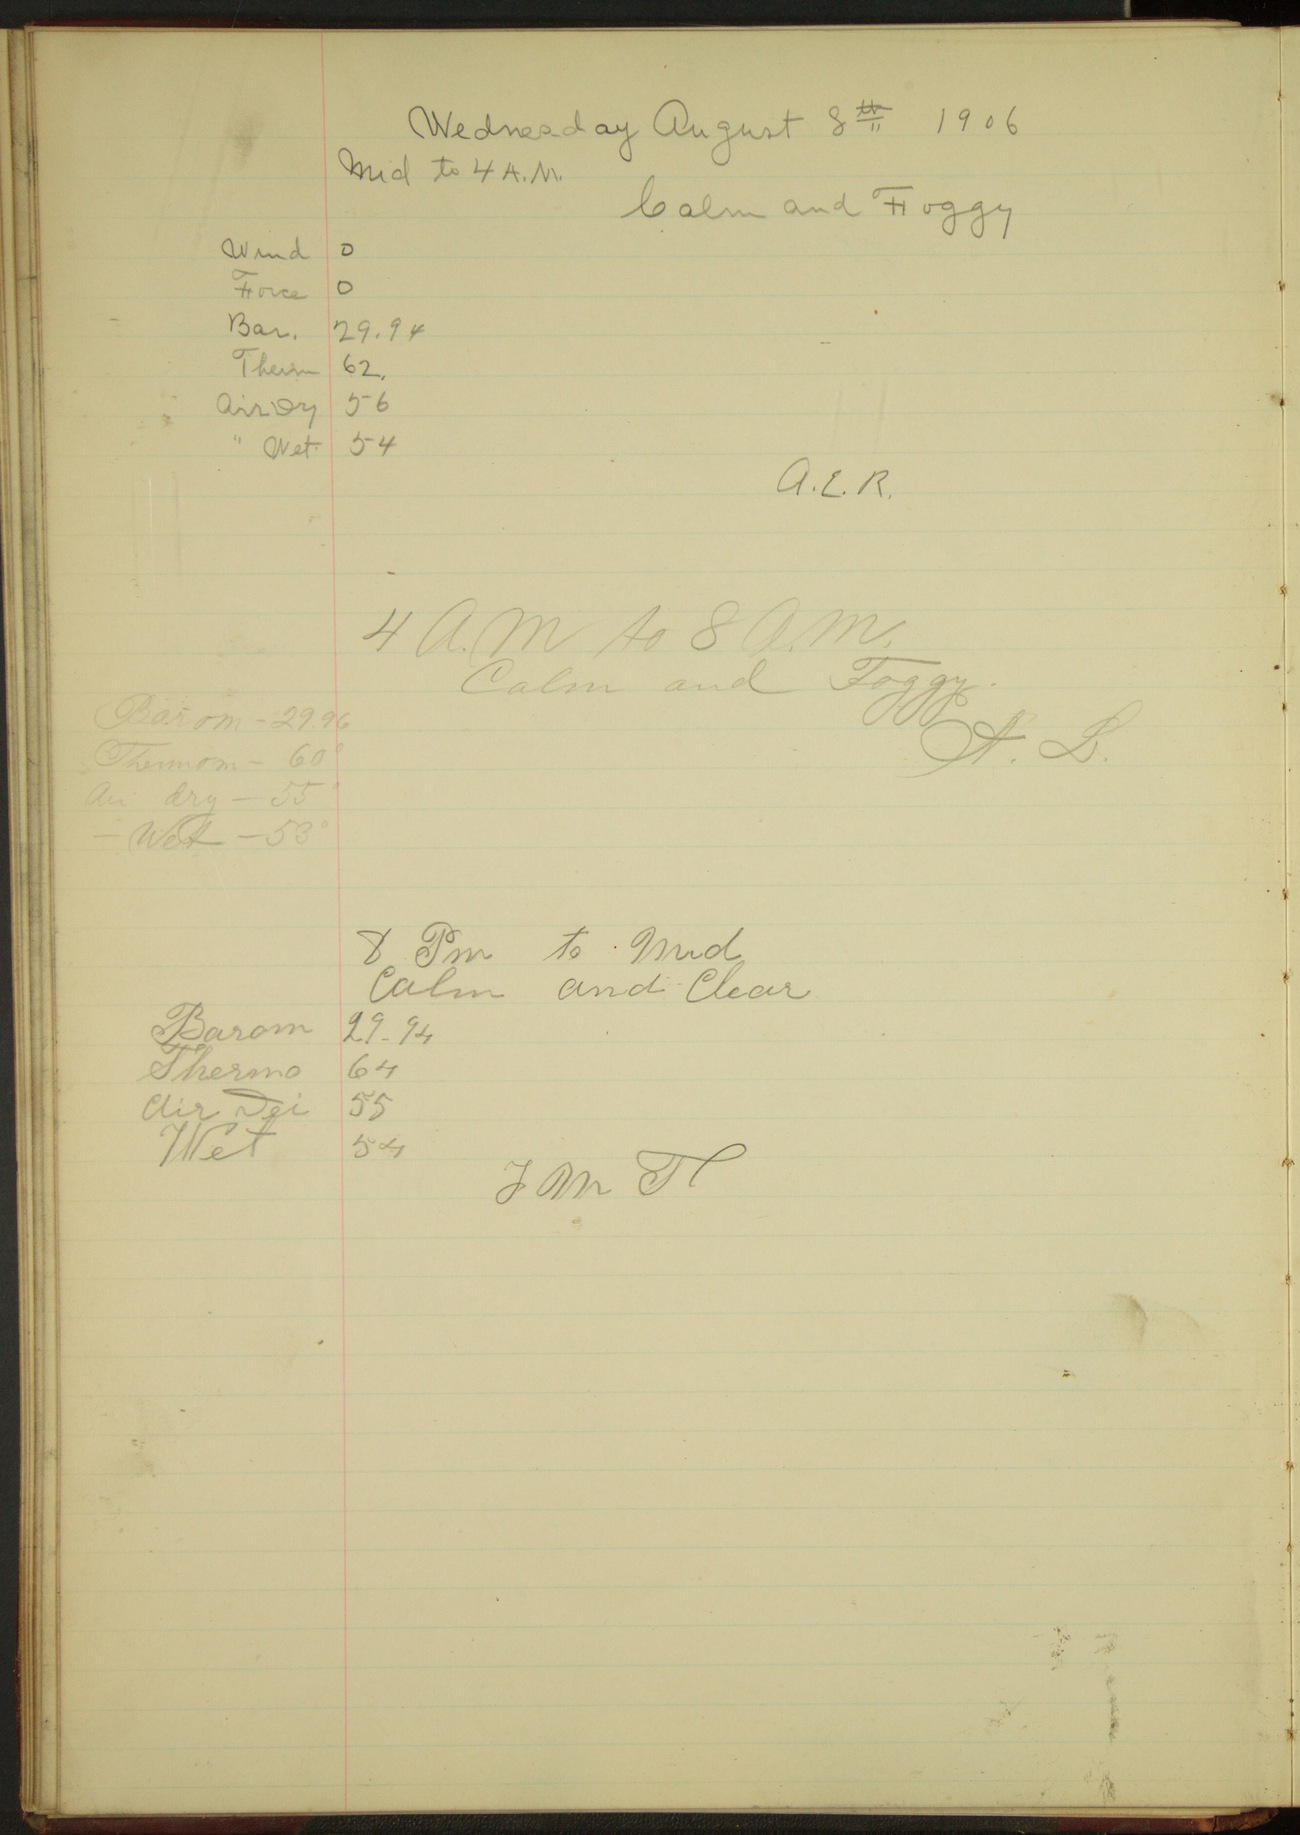 Wednesday August 8th 1906
Mid to 4 A.M.
Calm and Foggy
Wind 0
Force 0
Bar. 29.94
Therm 62.
Air Dry 56
" Wet. 54
A.E.R.
4 A.M to 8 A.M.
Calm and Foggy.
Barom - 29.96
A. L.
Thermom - 60°
Air dry - 55°
- Wet - 53°
8 Pm to Mid
Calm and Clear
Barom 29-94
Thermo 64
Air Dri 55
Wet 54